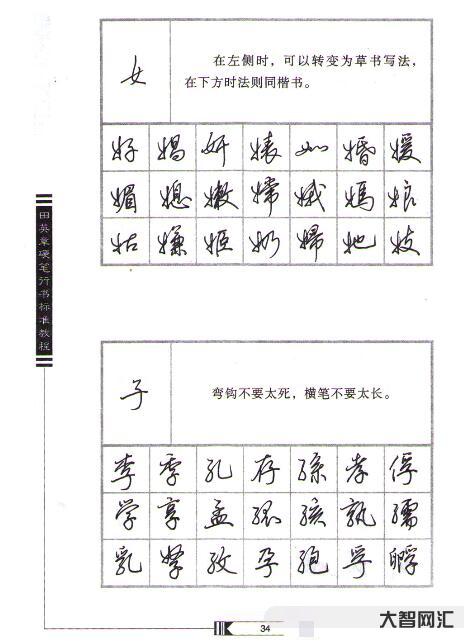 女
在左侧时，可以转变为草书写法，
在下方时法则同楷书。
好 娼 妍 婊 如 婚 媛
媚 媳 嫩 嫦 娥 妈 娘
姑 嫌 姬 奶 妇 她 妓
田英章硬笔行书标准教程
子
弯钩不要太死，横笔不要太长。
李 季 孔 存 孙 孝 俘
学 享 孟 孩 孰 孺
乳 孳 孜 孕 孢 孚 孵
34
大智网汇